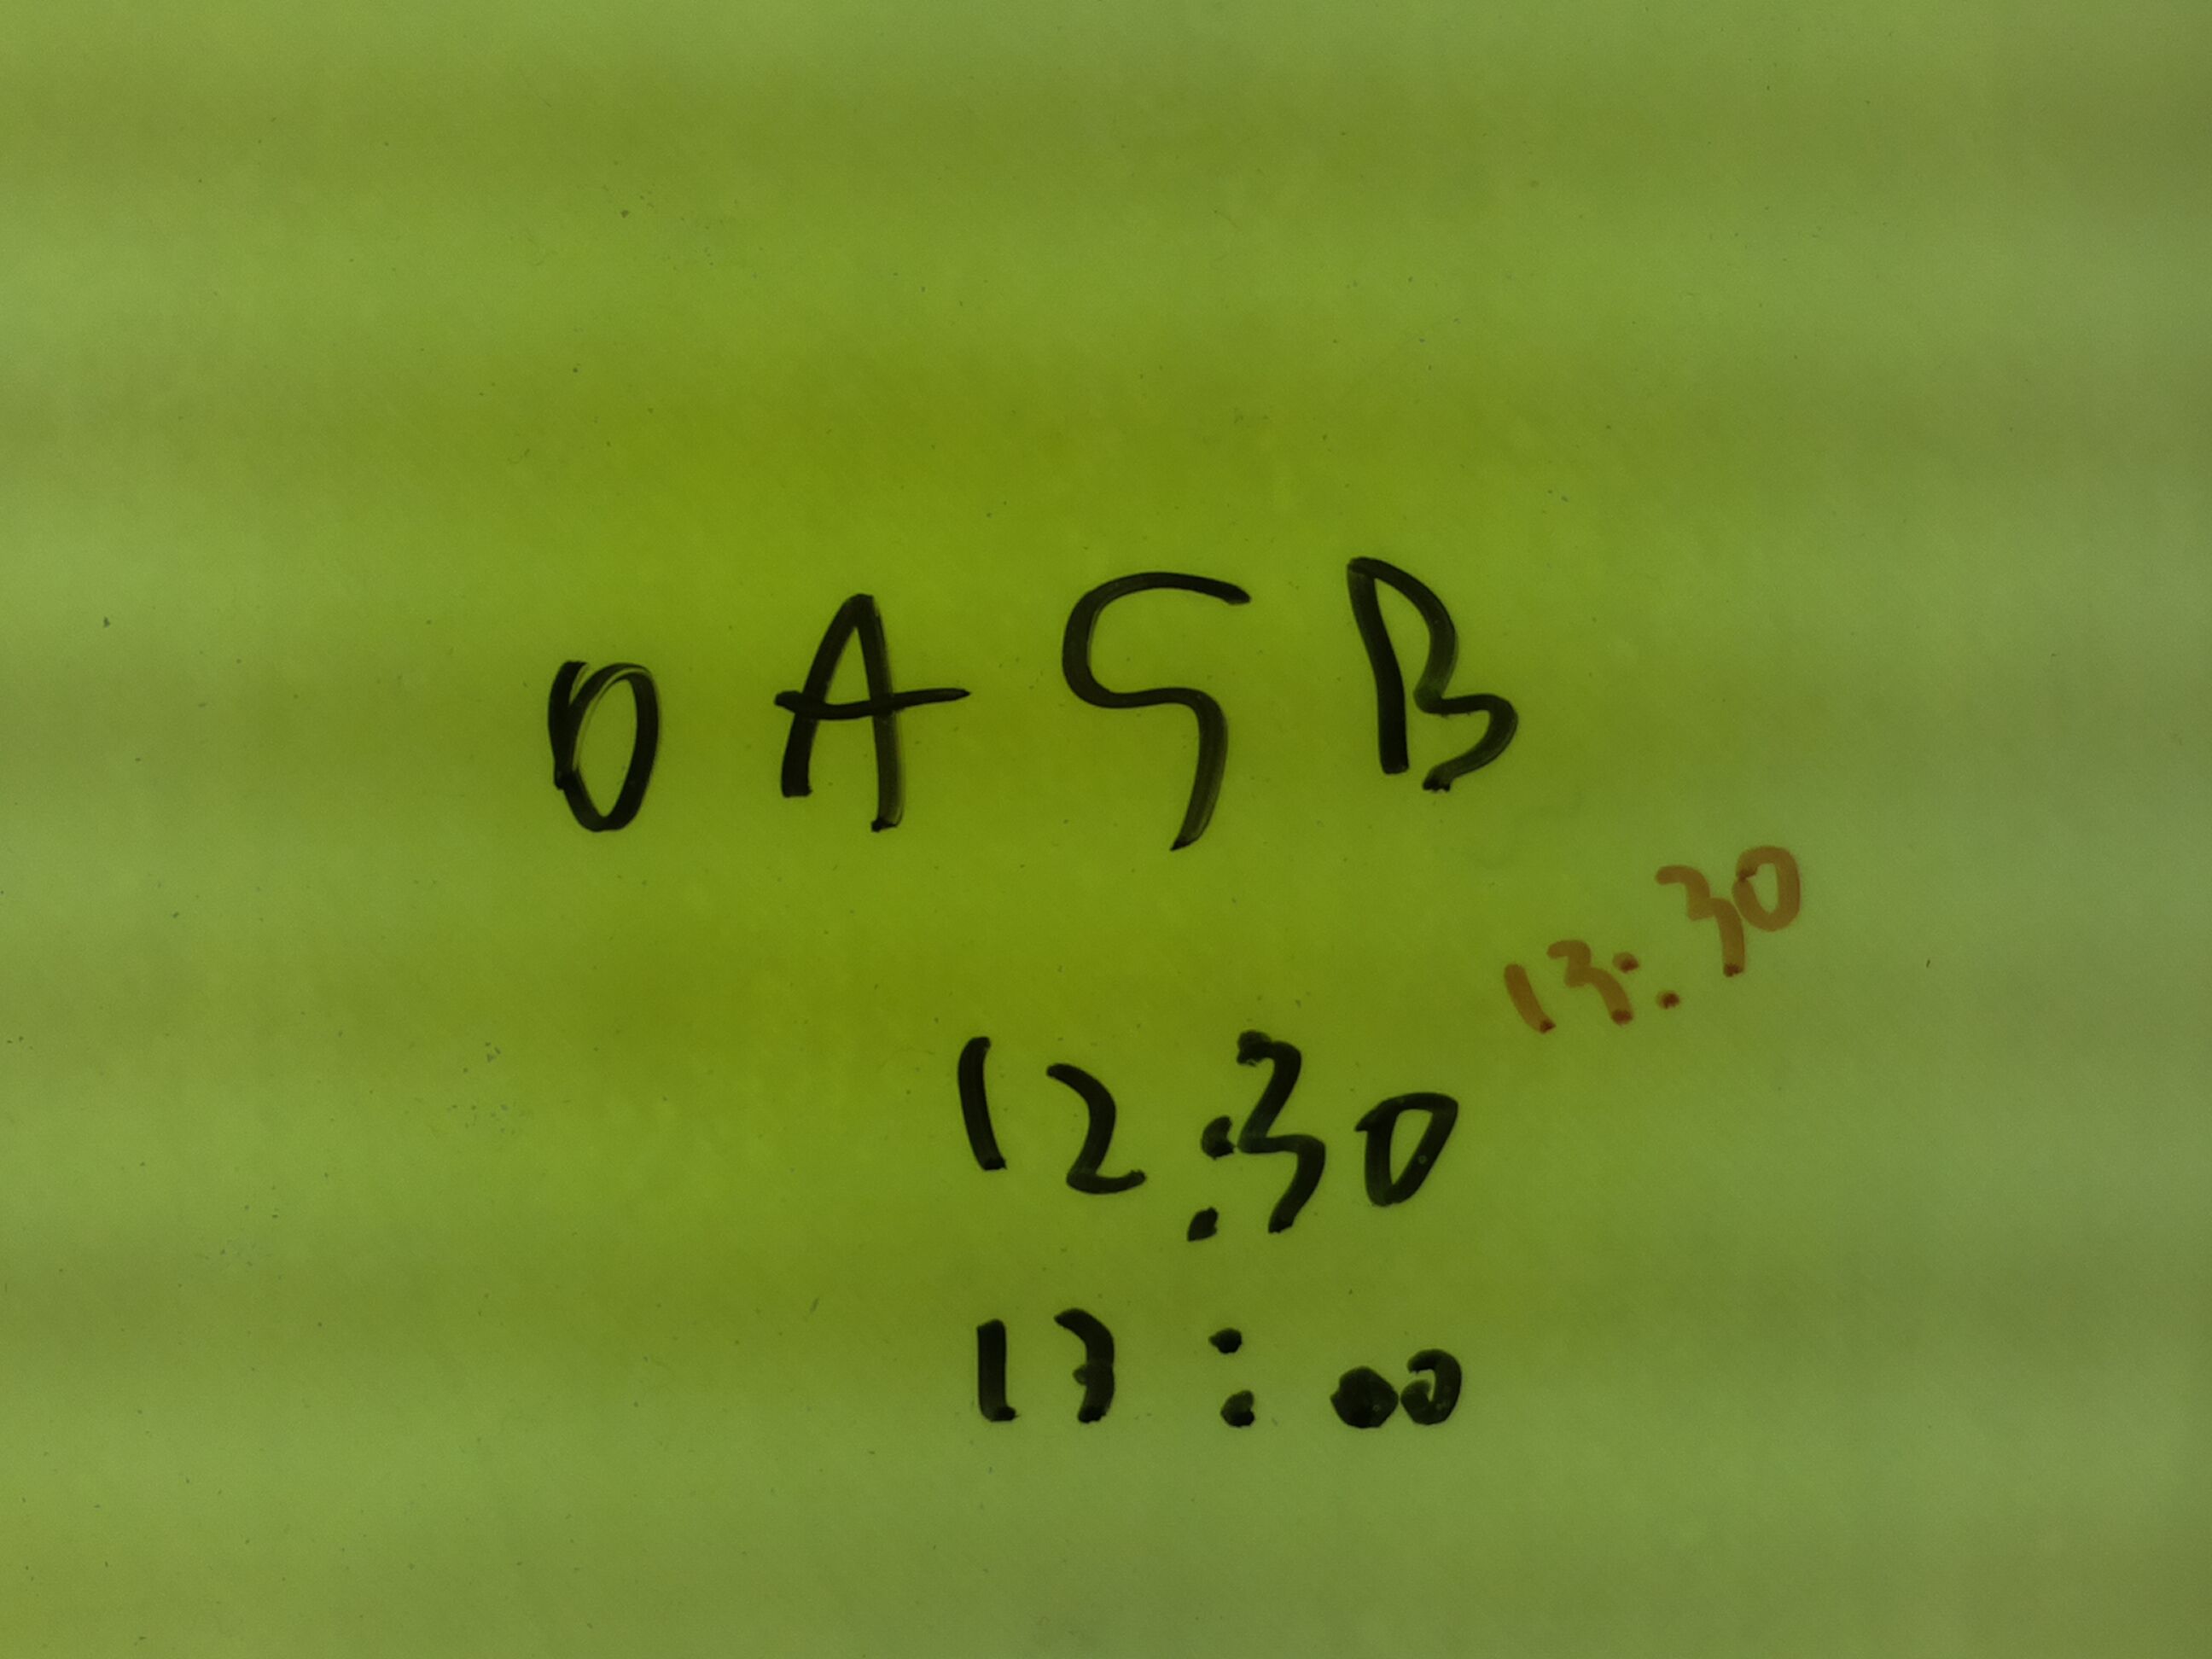 OAGB
13:30
12:30
13:00